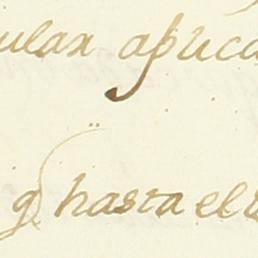 ular aplica
q̃ hasta el